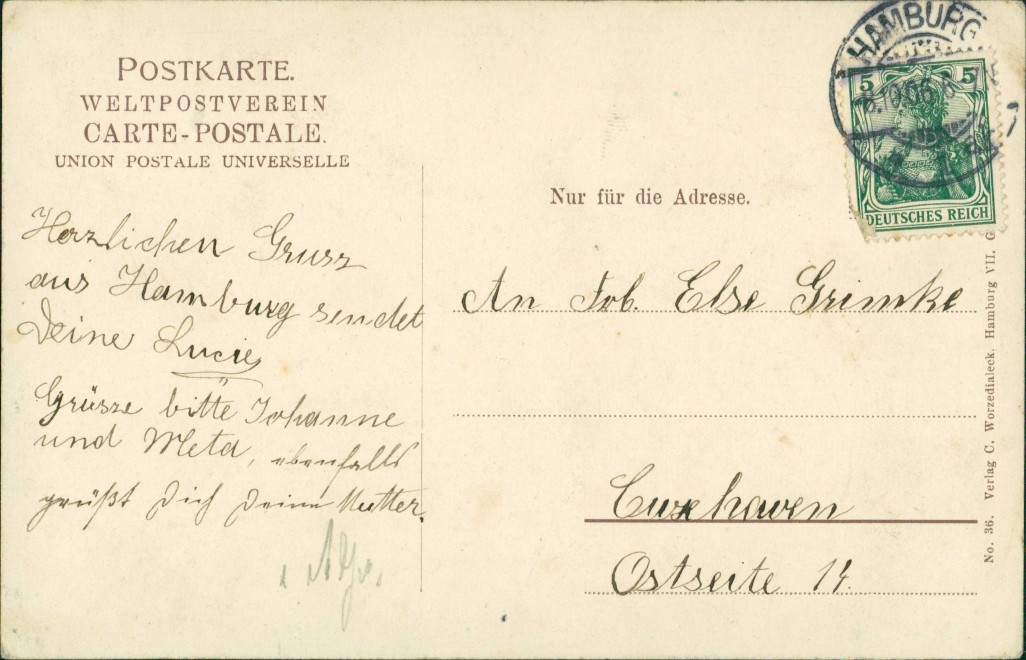 POSTKARTE.
WELTPOSTVEREIN
CARTE-POSTALE.
UNION POSTALE UNIVERSELLE
Herzlichen Gruss
aus Hamburg sendet
Deine Lucie
Grüsse bitte Johanne
und Meta, ebenfalls
grüßt Dich Deine Mutter.
HAMBURG
8.10.06.
5 5
DEUTSCHES REICH
Nur für die Adresse.
An Frl. Else Grimke
Cuxhaven
Ostseite 14.
No. 36. Verlag C. Worzedialeck, Hamburg VII. G